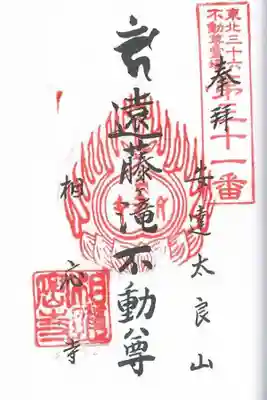 東北三十六
不動尊霊場
第三十一番
奉拝
安達太良山
遠藤滝不動尊
相応寺